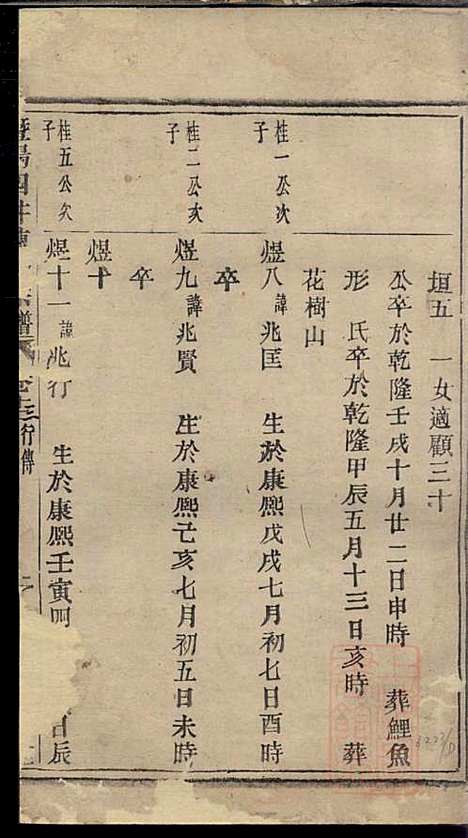 垣五 一女適顧三十
公卒於乾隆壬戌十月廿二日申時 葬鯉魚
形 氏卒於乾隆甲辰五月十三日亥時 葬
花樹山
桂一公次子
煜八 諱兆匡 生於康熙戊戌七月初七日酉時
卒
桂二公次子
煜九 諱兆賢 生於康熙己亥七月初五日未時
卒
煜十
桂五公矢子
煜十一 諱兆行 生於康熙壬寅四 日辰
譜 行傳